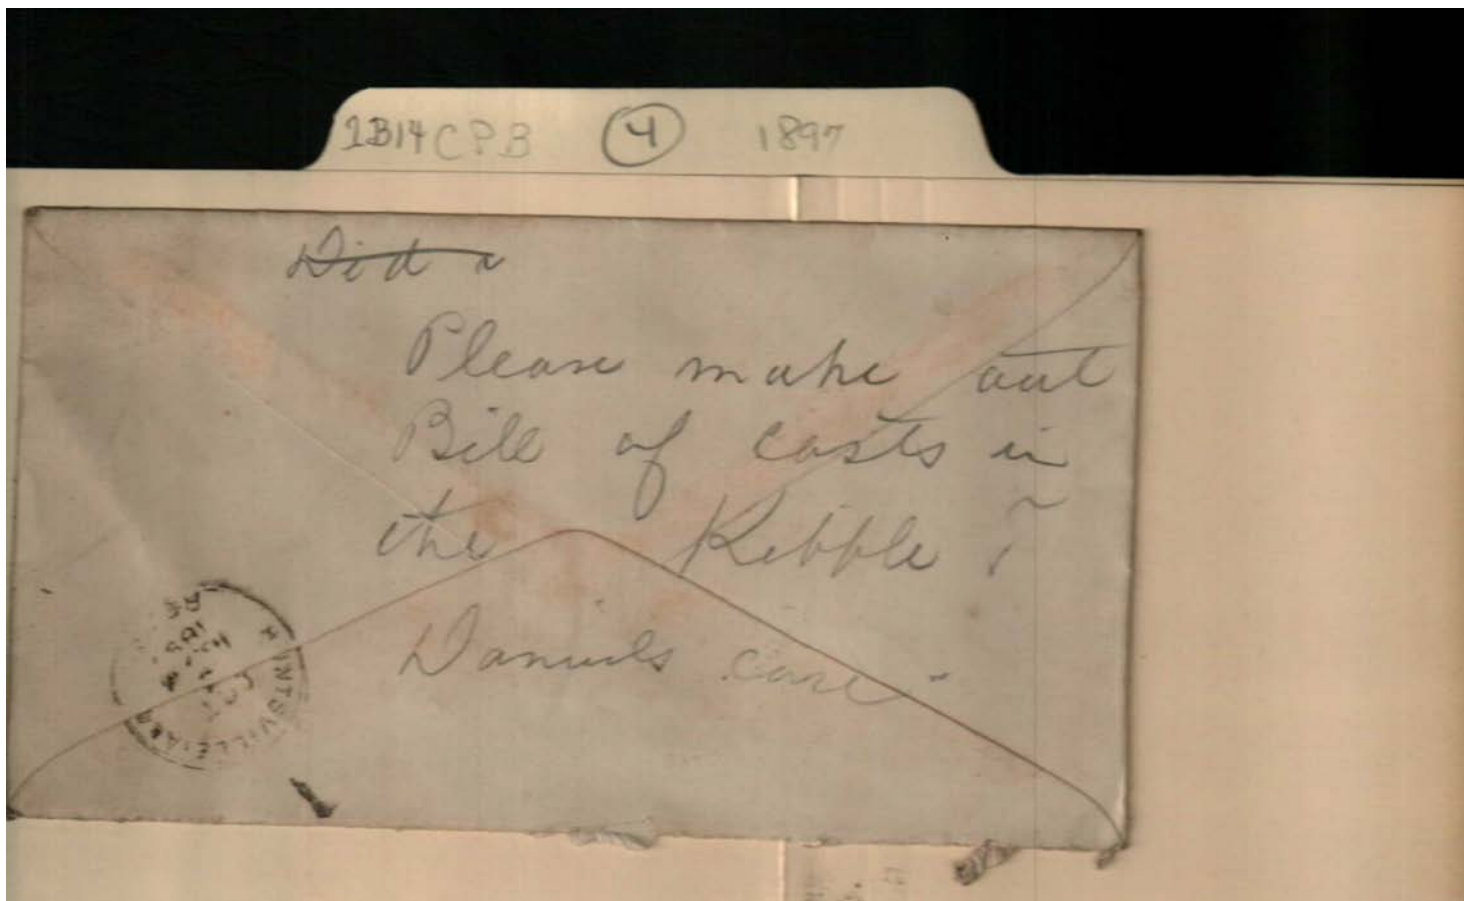 2B14 CPB 4 1897
Did
Please make out
Bill of costs in
the Kibble
Daniels case
HUNTSVILLE ALA